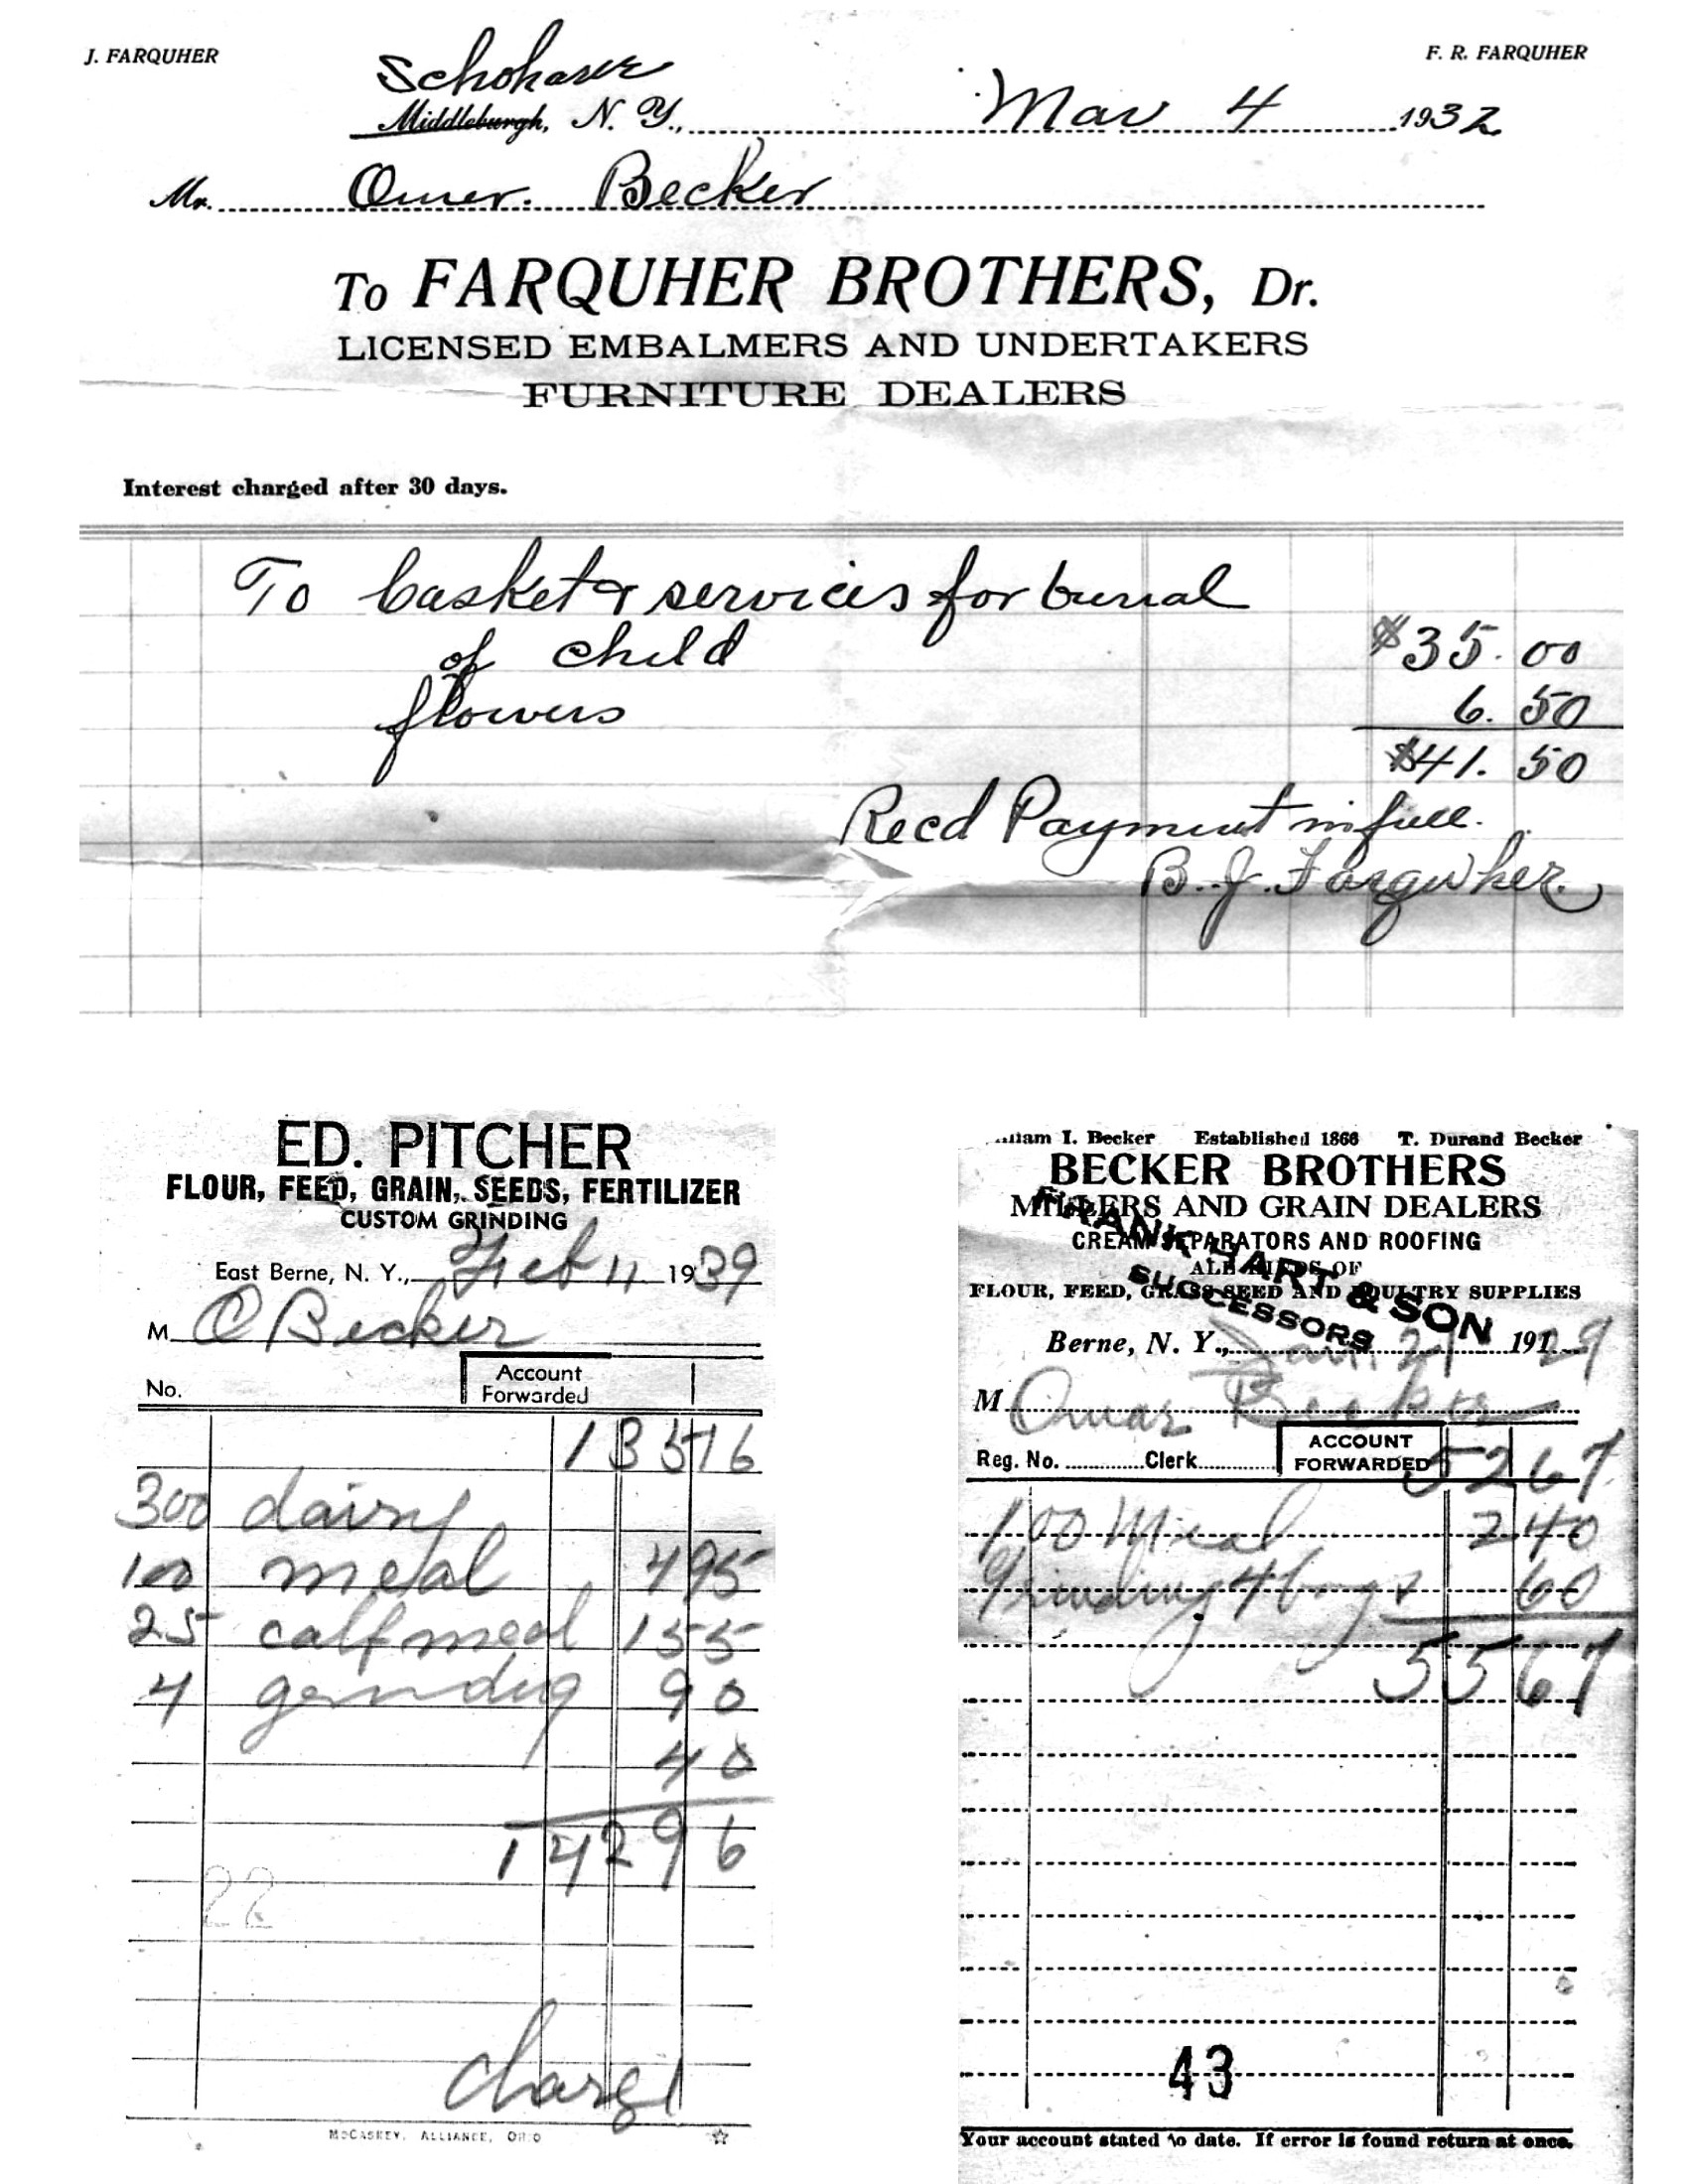 J. FARQUHER
F. R. FARQUHER
Schoharie
Middleburgh, N. Y., Mar 4 1932
Mr. Omer. Becker
To FARQUHER BROTHERS, Dr.
LICENSED EMBALMERS AND UNDERTAKERS
FURNITURE DEALERS
Interest charged after 30 days.
To casket & services for burial
of child $35.00
flowers 6.50
$41.50
Recd Payment in full.
B. J. Farquher.
ED. PITCHER
FLOUR, FEED, GRAIN, SEEDS, FERTILIZER
CUSTOM GRINDING
East Berne, N. Y., Feb 11 1939
M O Becker
No. Account Forwarded
133 16
300 dairy
100 meal 4 95
25 calf meal 1 55
4 grinding 90
40
142 96
22
charge
McCASKEY, ALLIANCE, OHIO
I. Becker Established 1866 T. Durand Becker
BECKER BROTHERS
MILLERS AND GRAIN DEALERS
CREAM SEPARATORS AND ROOFING
ALL KINDS OF
FLOUR, FEED, GRASS SEED AND POULTRY SUPPLIES
FRANK HART & SON
SUCCESSORS
Berne, N. Y., Jan. 21 191 29
M Omar Becker
Reg. No. Clerk ACCOUNT FORWARDED 52 67
100 Meal 2 40
Grinding 4 bags 60
55 67
43
Your account stated to date. If error is found return at once.